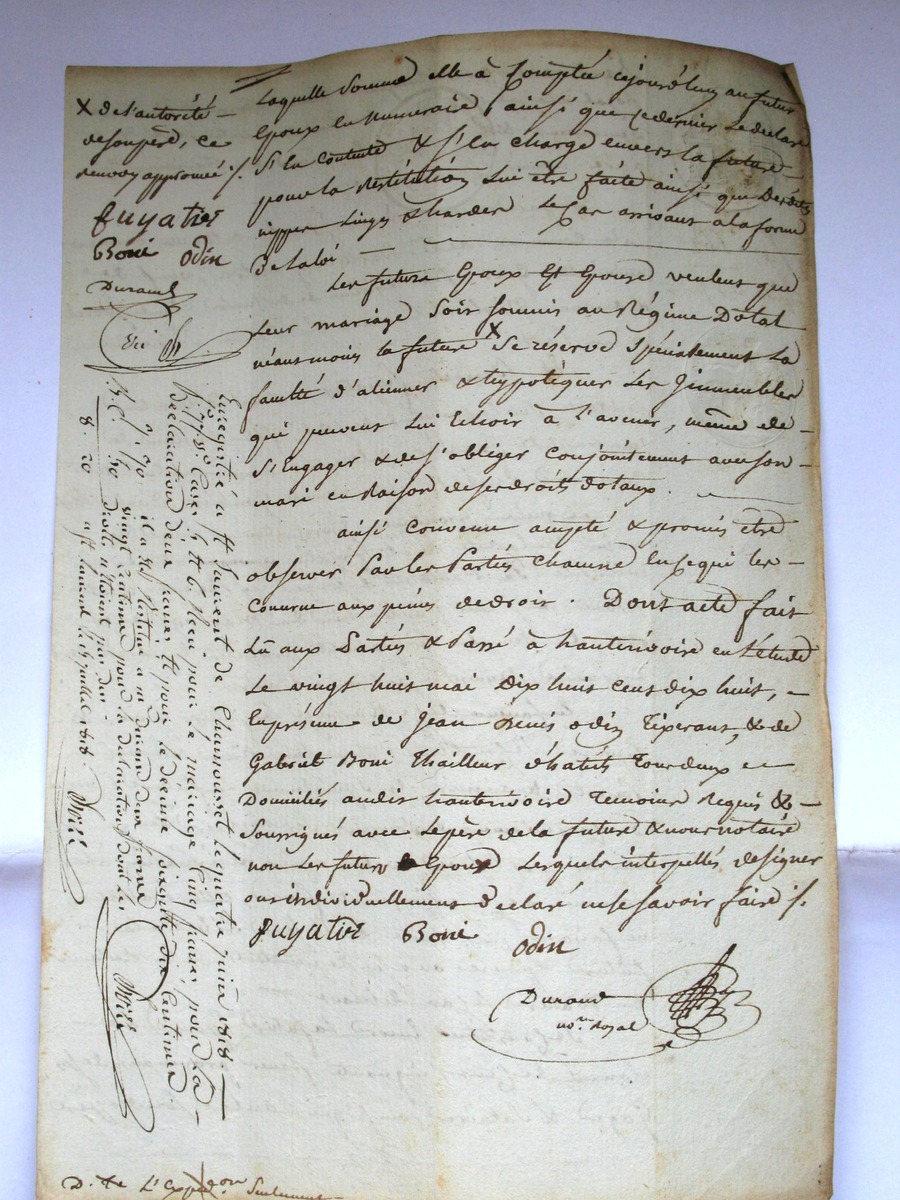 X de l'autorité
de son père, ce
renvoy approuvé ./.
fuyatier
Boni odin
Durand
laquelle Somme elle à Comptée cejourd'huy au futur
Epoux en Numeraire, ainsi que ce dernier le declare
S'en Contente & s'en charge envers la future
pour la Restitution lui être faite ainsi que desdits
nippes linges & hardes le Cas arrivant a la forme
De la loi
Les futurs Epoux Et Epouse veulent que
leur mariage Soit soumis au Régime Dotal
néansmoins la future X Se réserve Spécialement la
faculté d'alienner & hypotéquer les Jmmeubles
qui peuvent lui Echoir à l'avenir, même de
S'Engager & de s'obliger conjointement avec son
mari en Raison de ses droits dotaux.
ainsi Convenu accepté & promis être
observé Par les Parties chacune En ce qui les
Concerne aux peines de droit. Dont acte fait
Lu aux Parties & Passé à hauterivoire en l'étude
Le vingt huit mai dix huit cent dix huit,
En présence de jean Denis odin Tixerant, & de
Gabriel Boni Thailleur d'habits Tous deux
Domiciliés audit hauterivoire Temoins Requis &
Soussignés avec le père de la future & nous notaire
non les futurs Epoux lesquels interpellés de signer
ont individuellement declaré ne le savoir faire ./.
fuyatier Boni odin
Durand
no.re Royal
Enregistré à St Laurent de Chamousset le quatre juin 1818.
pour le mariage Cinq francs, pour la
Declaration deux francs, et pour le dixieme soixante dix Centimes
vingt Centimes pour la declaration dont les
droits n'étoient pas dus.
à St Laurent le 6 juillet 1818.
8. 20
D. de L'expe.don Seulement